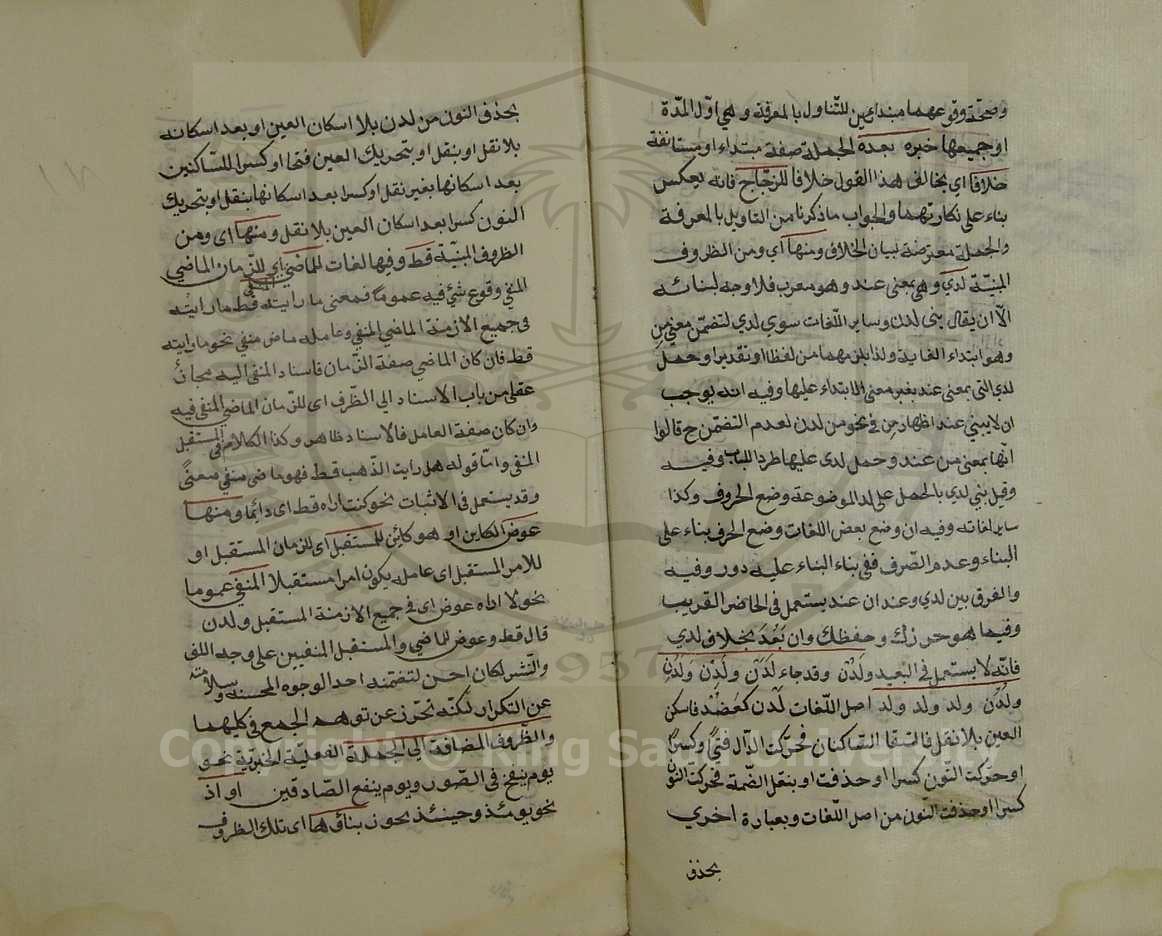 وصحّة وقوعهما مبتدأين للتّناول بالمعرفة وهي اوّل المدّة
او جميعها خبره بعده الجملة صفة مبتداء او مستانفة
خلافا اى يخالف هذا القول خلافا للزجّاج فانه يعكس
بناء على نكارتهما والجواب ما ذكرنا من التاويل بالمعرفة
والجملة معترضة لبيان الخلاف ومنها اى ومن الظروف
المبنيّة لدي وهي بمعنى عند وهو معرب فلا وجه لبنائه
الاّ ان يقال بنى لدن وساير اللّغات سوي لدي لتضمّن معني مِن
وهو ابتداء الغاية ولذا يلزمهما من لفظا او تقديرا وحمل
لدي التى بمعنى عند بغير معنى الابتداء عليها وفيه انه يوجب
ان لا يبني عند اظهار مِن في نحو من لدن لعدم التضمّن ح قالوا
انّها بمعنى من عند وحمل لدى عليها طردا للباب وفيه
وقيل بني لدي بالحمل على لد الموضوعة وضع الحروف وكذا
ساير لغاته وفيه ان وضع بعض اللغات وضع الحرف بناء على
البناء وعدم الصّرف ففى بناء البناء عليه دور وفيه
والفرق بين لدي وعند ان عند يستعمل فى الحاضر القريب
وفيما هو حرزك وحفظك وان بَعُدَ بخلاف لدي
فانّه لا يستعمل في البعيد ولَدُن وقد جاء لَدَن ولَدِن ولَدْنِ
ولُدْن ولد ولد ولد اصل اللّغات لَدُن كعَضُد فاسكن
العين بلا نقل فالتقا السّاكنان فحرّكت الدّال فتحًا وكسرًا
او حرّكت النّون كسرا او حذفت او بنقل الضّمة فحركت النّون
كسرا او حذفت النّون من اصل اللّغات وبعبارة اخري
بحذف
بحذف النون من لدن بلا اسكان العين او بعد اسكانه
بلا نقل او بنقل او بتحريك العين فتحا او كسرا للسّاكنين
بعد اسكانها بغير نقل او كسرا بعد اسكانها بنقل او بتحريك
النون كسرا بعد اسكان العين بلا نقل ومنها اى ومن
الظروف المبنيّة قط وفيها لغات للماضي اى للزّمان الماضي
المنفي وقوع شئ فيه عموما فمعنى ما رايته قط ما رايته
فى جميع الازمنة الماضي المنفى وعامله ماض منفي نحو ما رايته
قط فان كان الماضي صفة الزّمان فاسناد المنفى اليه مجازٌ
عقلى من باب الاسناد الى الظّرف اى للزّمان الماضي المنفى فيه
وان كان صفة العامل فالاسناد ظاهر وكذا الكلام فى المستقبل
المنفى وامّا قوله هل رايت الذّهب قط فهو ماضى منفي معنىً
وقد يستعمل فى الاثبات نحو كنت اراه قط اى دائما ومنها
عوض الكاين او هو كائن للمستقبل اى للزمان المستقبل او
للامر المستقبل اى عامله يكون امرا مستقبلا المنفى عموما
نحو لا اراه عوض اى فى جميع الازمنة المستقبل ولدن
قال قط وعوض للماضي والمستقبل المنفيين على وجه اللف
والنّشر لكان احسن لتضمنه احد الوجوه المحسنه وسلامته
عن التكرار لكنّه تحرّز عن توهم الجمع في كليهما
والظروف المضافة الى الجملة الفعلية الخبرية نحو
يوم ينفخ فى الصّور ويوم ينفع الصّادقين او اذ
نحو يومئذ وحينئذ يجوز بناؤها اى تلك الظروف
1957
Copyright © King Saud University